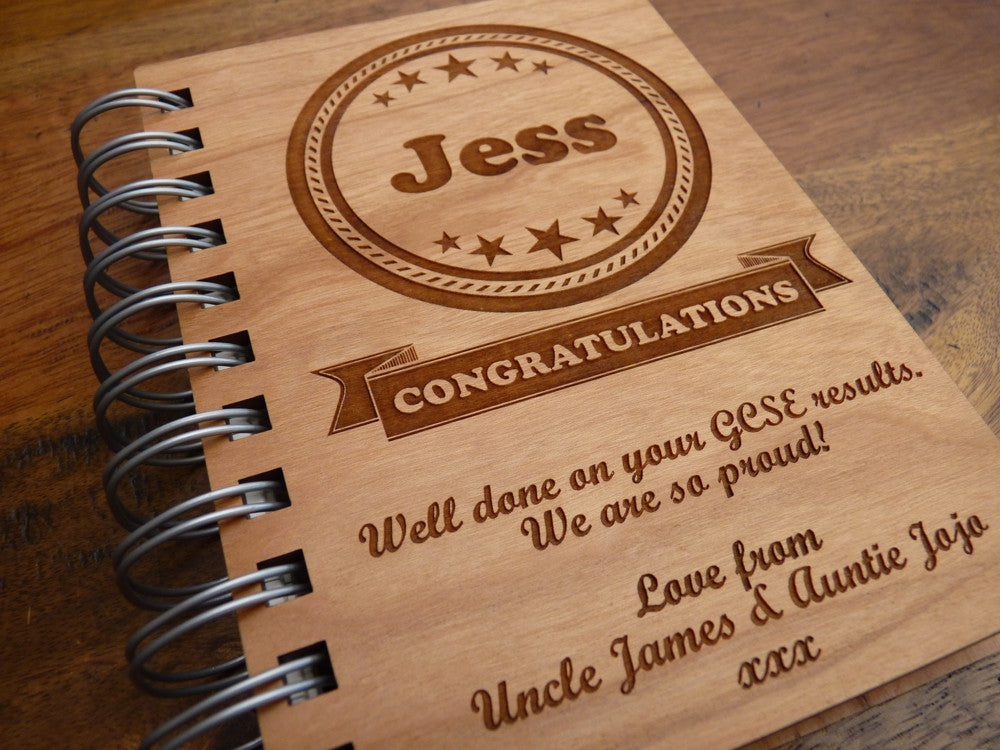 Jess
CONGRATULATIONS
Well done on your GCSE results.
We are so proud!
Love from
Uncle James & Auntie Jojo
xxx